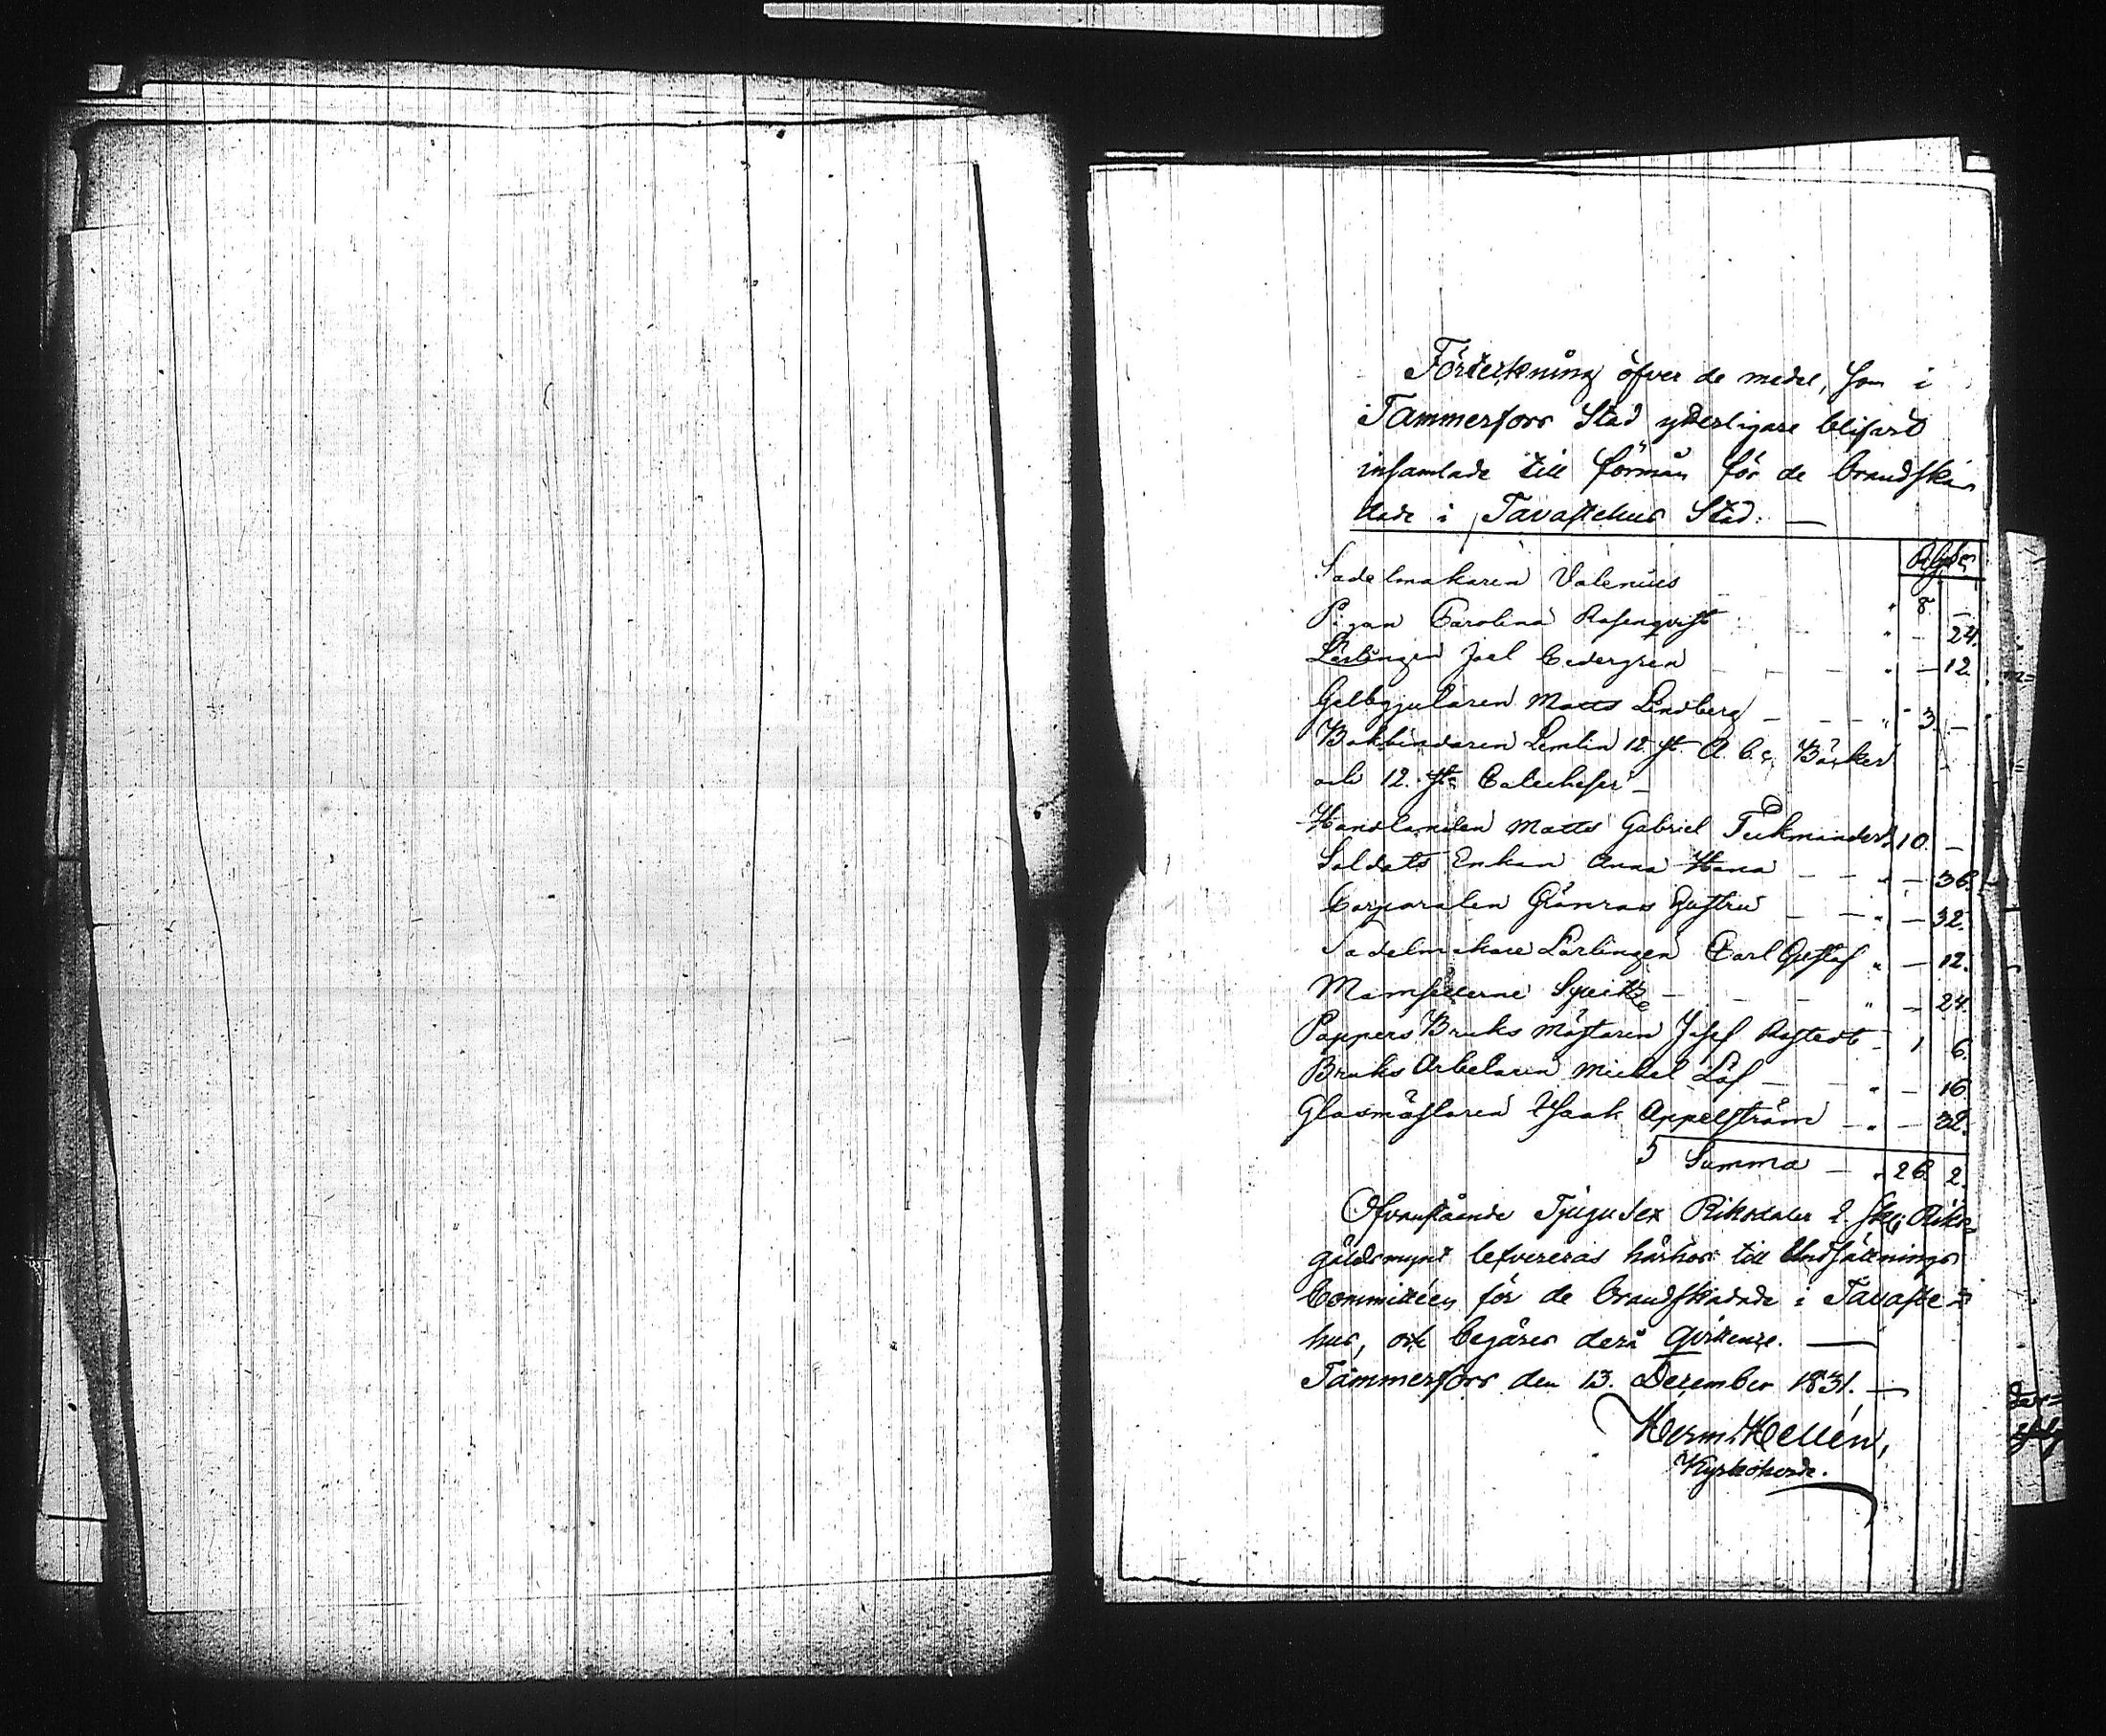 Förteckning öfver de medel, som i
Tammerfors Stad ytterligare blifvit
insamlade till förmån för de brandska-
dade i Tavastehus Stad. —
Sadelmakaren Valenius " 8. —
Pigan Carolina Rosenqvist " — 24.
Lärlingen Joel Cedergren " — 12.
Gelbgjutaren Matts Lindberg — " 3. —
Bokbindaren Lemlin 12 st. A.b.c. Böcker
och 12. st. Catecheser —
Handlanden Matts Gabriel 10. —
Soldats Enkan Anna Hana — " — 36.
Corporalen Grönroos Hustru — " — 32.
Sadelmakare Lärlingen Carl Gustaf " — 12.
Mamsellerne — " — 24.
Pappers Bruks Mästaren Josef — 1. 6.
Bruks Arbetaren Michel Löf — " — 16.
Glasmästaren Isaak Appelström — " — 32.
Summa — " 26. 2.
Ofvanstående Tjugusex Riksdaler 2 sk. Riks-
gäldsmynt lefvereras härhos till Undsättnings
Committéen för de brandskadade i Tavaste-
hus, och begäres derå qvittence. —
Tammerfors den 13. December 1831. —
Herm. Hellén,
Kyrkoherde.